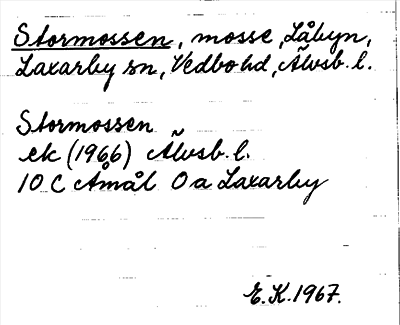 Stormossen, mosse, Låbyn,
Laxarby sn, Vedbo hd, Älvsb. l.
Stormossen
ek (1966) Älvsb. l.
10 C Åmål 0 a Laxarby
E.K. 1967.